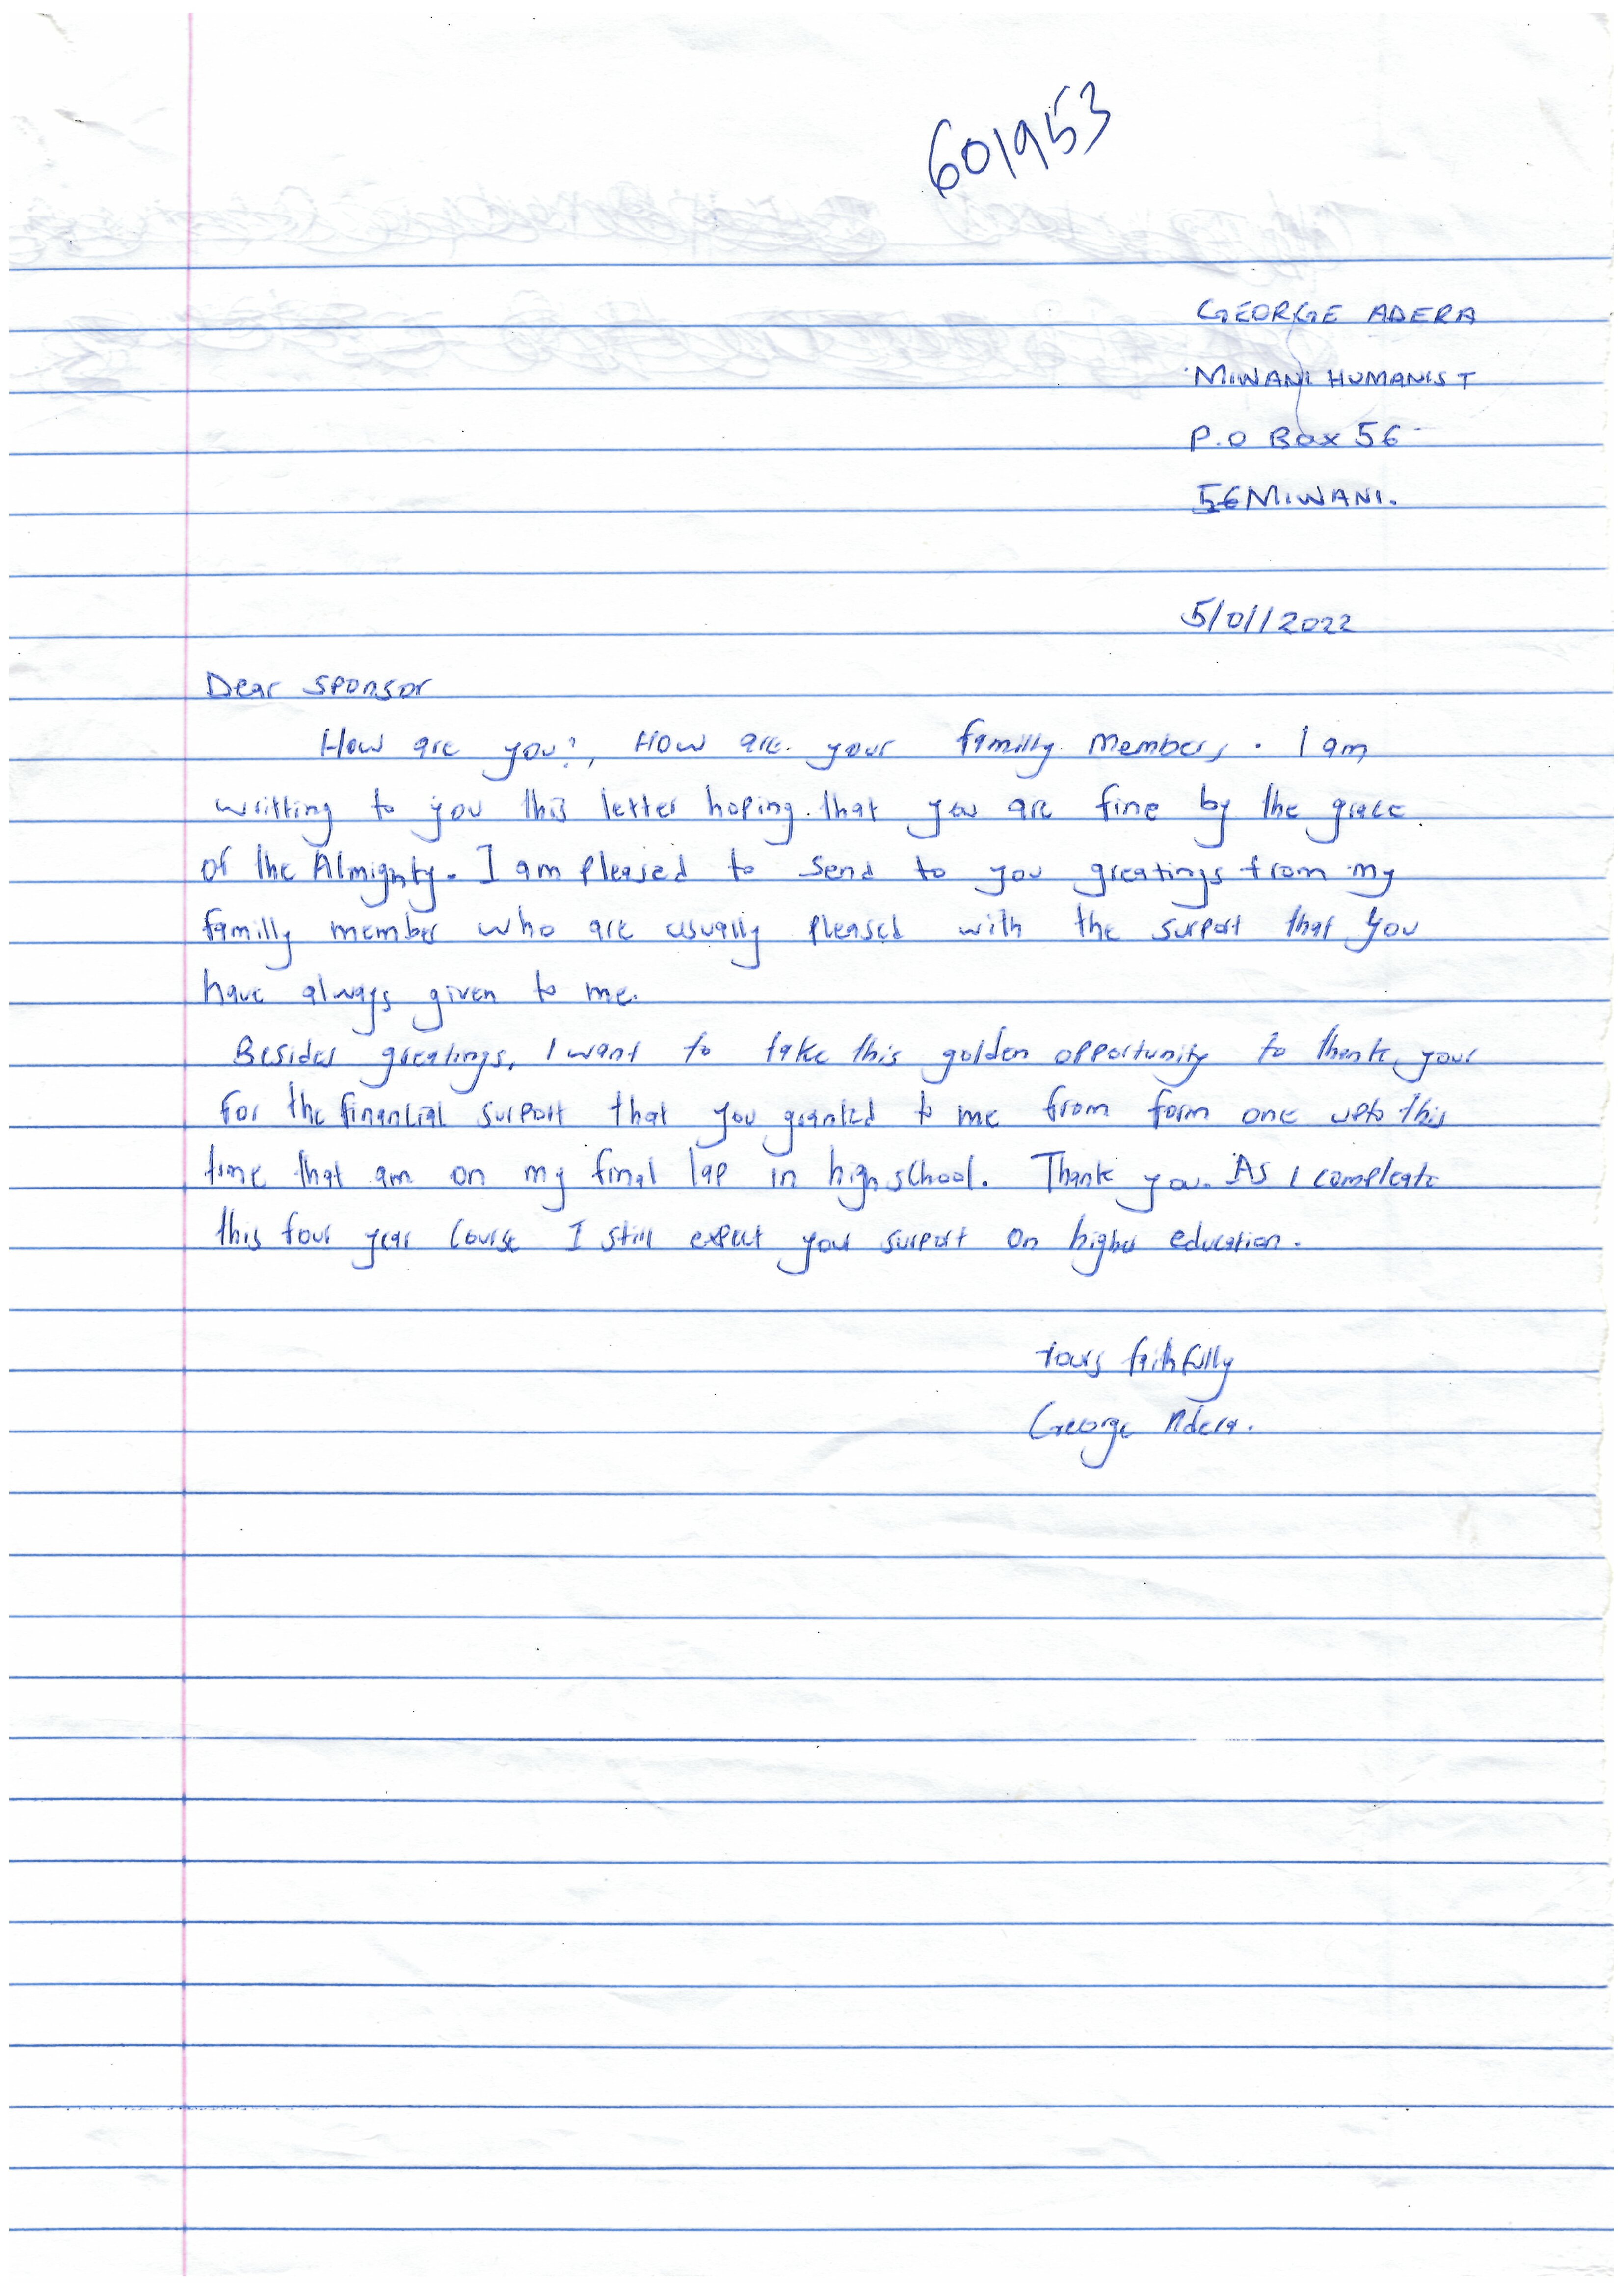 601953
GEORGE ADERA
MIWANI HUMANIST
P.O Box 56
56 MIWANI.
5/01/2022
Dear sponsor
How are you?, How are your familly members. I am
writting to you this letter hoping that you are fine by the grace
of the Almighty. I am pleased to send to you greatings from my
familly member who are usually pleased with the surport that you
have always given to me.
Besides greatings, I want to take this golden opportunity to thank your
for the financial surport that you granted to me from form one upto this
time that am on my final lap in high school. Thank you. As I compleate
this four year course I still expect your surport on higher education.
Yours faithfully
George Adera.